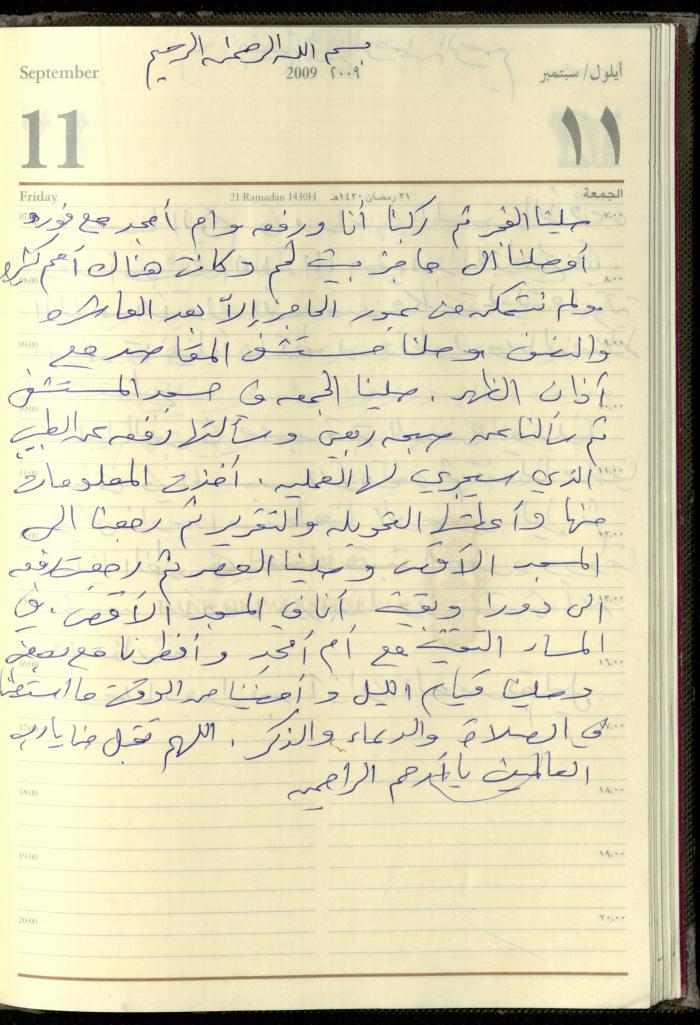 بسم الله الرحمن الرحيم
September 2009 ٢٠٠٩ أيلول/ سبتمبر
11 ١١
Friday 21 Ramadan 1430H ٢١ رمضان ١٤٣٠هـ الجمعة
صلينا الفجر ثم ركبنا أنا ورفعه وام أمجد مع فورد
أوصلنا الى حاجز بيت لحم وكانت هناك أمم كثيره
ولم نتمكن من عبور الحاجز إلاّ بعد العاشره
والنصف وصلنا مستشفى المقاصد مع
آذان الظهر . صلينا الجمعه في مسجد المستشفى
ثم سألنا عن ربعي وسألتها رفعه عن الطبيب
الذي سيجري لها العمليه . أخذت المعلومات
منها وأعطتها التحويله والتقرير ثم رجعنا الى
المسجد الأقصى وصلينا العصر ثم رجعت رفعه
الى دورا وبقيت أنا في المسجد الأقصى . في
المساء التقيت مع أم أمجد وأفطرنا مع بعض
وصلينا قيام الليل وأمضينا من الوقت ما استطعنا
في الصلاة والدعاء والذكر . اللهم تقبل منا يا رب
العالمين يا أرحم الراحمين
07:00 ٧،٠٠
08:00 ٨،٠٠
09:00 ٩،٠٠
10:00 ١٠،٠٠
11:00 ١١،٠٠
١٢،٠٠
١٣،٠٠
16:00 ١٦،٠٠
17:00 ١٧،٠٠
18:00 ١٨،٠٠
19:00 ١٩،٠٠
20:00 ٢٠،٠٠